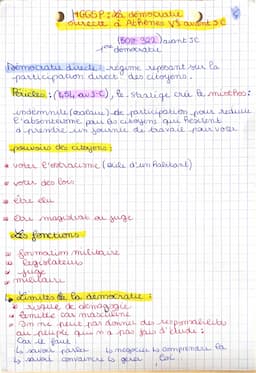 HGGSP : La démocratie
directe à Athènes Vs avant JC
(508-322) avant JC
1ère démocratie
Démocratie directe : régime reposant sur la
participation directe des citoyens.
Périclès : (454 av J-C), le stratège crée le misthos :
indemnité (salaire) de participation pour réduire
l'absentéisme pour les citoyens qui hésitent
à prendre un journée de travail pour voter
pouvoirs des citoyens :
voter l'ostracisme (exile d'un habitant)
voter des lois
être élu
être magistrat ou juge
Les fonctions
formation militaire
législateur
juge
militaire
Limites de la démocratie :
risque de démagogie
limitée car masculine
On ne peut pas donner des responsabilités
au peuple qui n'a pas fait d'étude :
Car il faut
savoir parler négocier comprendre la
savoir convaincre gérer loi